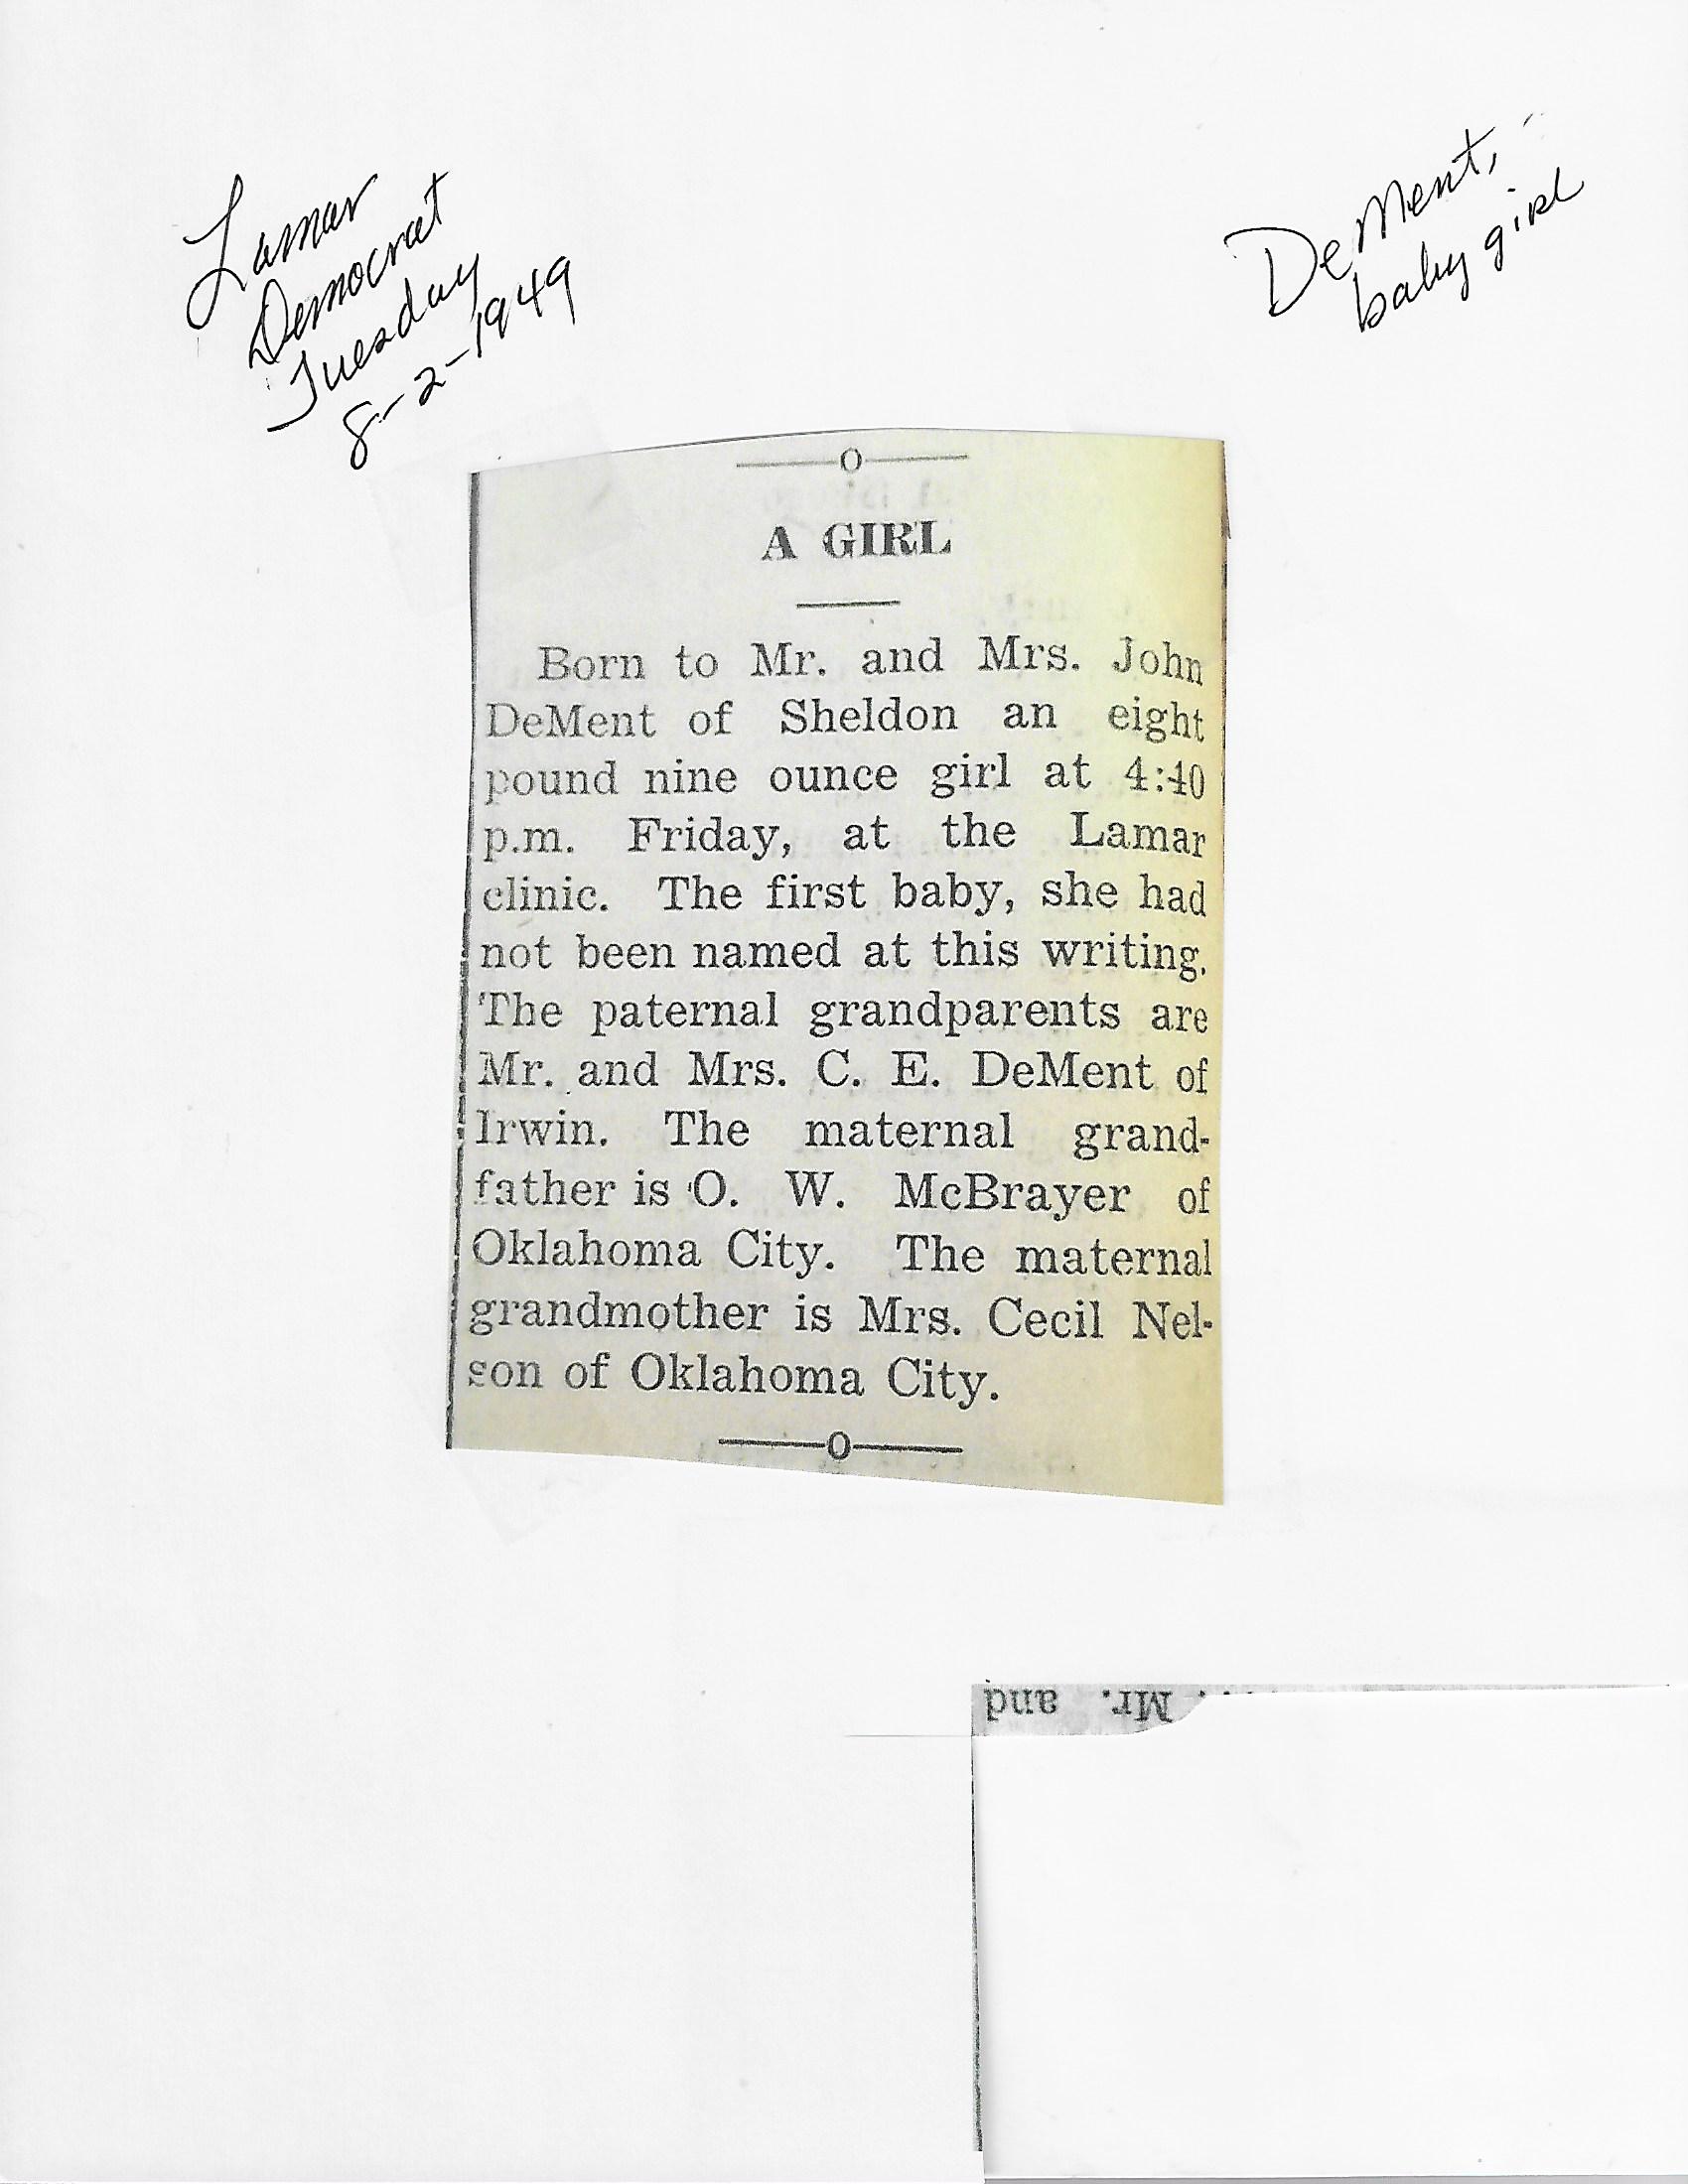 Lamar
Democrat
Tuesday
8-2-1949
DeMent,
baby girl
A GIRL
Born to Mr. and Mrs. John
DeMent of Sheldon an eight
pound nine ounce girl at 4:40
p.m. Friday, at the Lamar
clinic. The first baby, she had
not been named at this writing.
The paternal grandparents are
Mr. and Mrs. C. E. DeMent of
Irwin. The maternal grand-
father is O. W. McBrayer of
Oklahoma City. The maternal
grandmother is Mrs. Cecil Nel-
son of Oklahoma City.
Mr. and